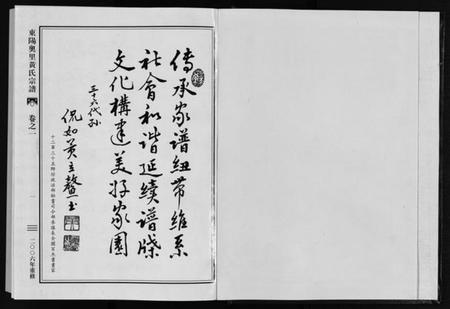 傳承家譜紐帶維系
社會和諧延續譜牒
文化構建美好家園
三十六代孫
侃如黃立鰲書
東陽奧里黃氏宗譜
卷之一
一
二〇〇六年重修